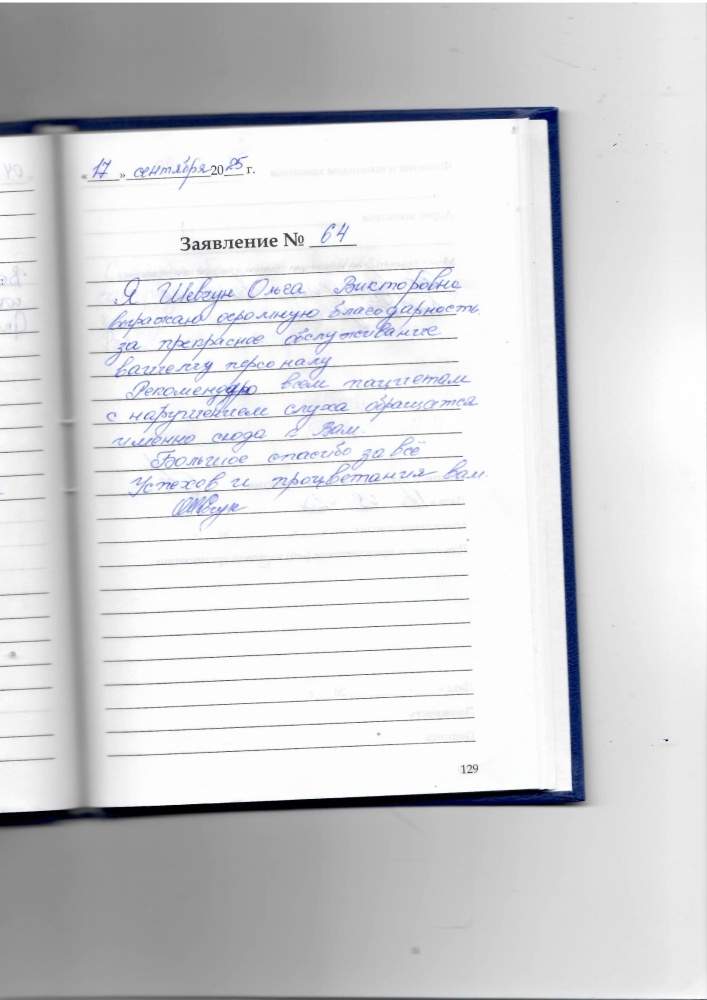 « 17 » сентября 2025 г.
Заявление № 64
Я Шевчук Ольга Викторовна
выражаю огромную благодарность
за прекрасное обслуживание
вашему персоналу
Рекомендую всем пациетам
с нарушением слуха обращатся
именно сюда к Вам.
Большое спасибо за всё
Успехов и процветания вам.
129